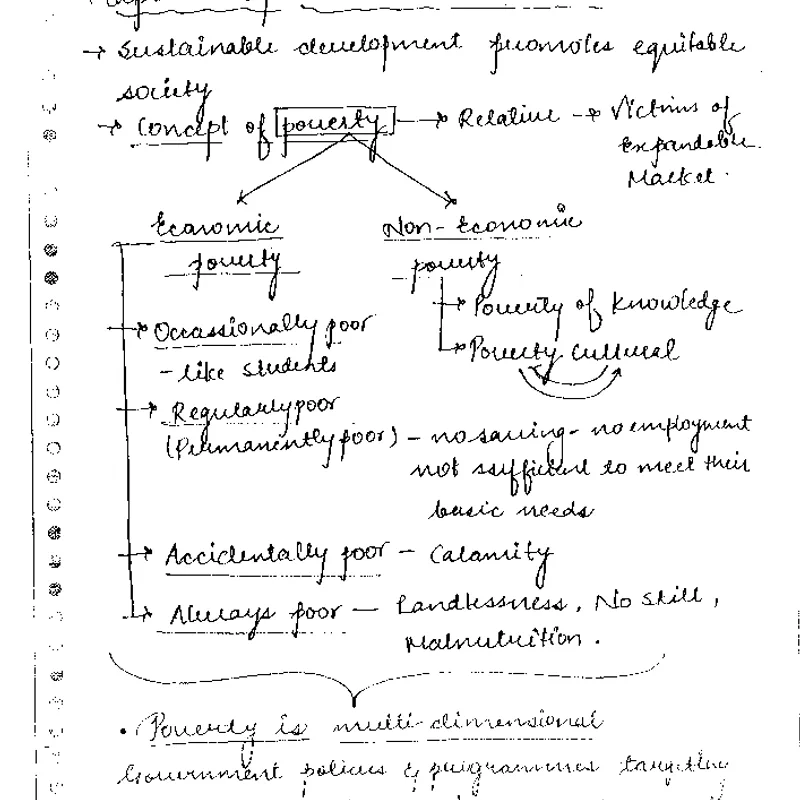 → Sustainable development promotes equitable
society
→ Concept of poverty → Relative → Victims of
Expandable
Market.
Economic
poverty
Non-Economic
poverty
→ Poverty of Knowledge
→ Poverty Cultural
→ Occassionally poor
- like students
→ Regularly poor
(Permanently poor) - no saving - no employment
not sufficient to meet their
basic needs
→ Accidentally poor - Calamity
→ Always poor - Landlessness, No skill,
Malnutrition.
• Poverty is multi-dimensional
Government policies & programmes targeting